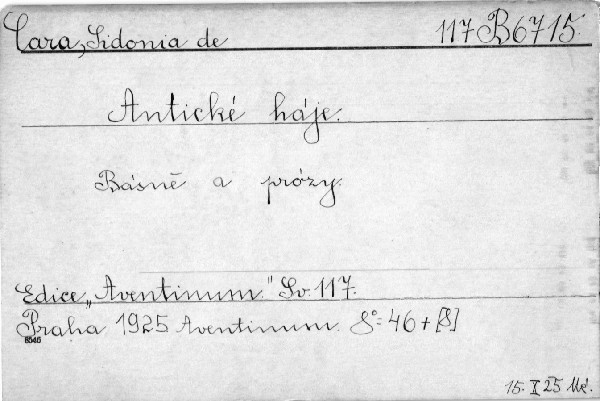 Cara, Sidonia de 117 B6715.
Antické háje.
Básně a prózy.
Edice „Aventinum.” Sv. 117.
Praha 1925 Aventinum. 8°= 46 + [8]
8546
15. X 25 Mé.